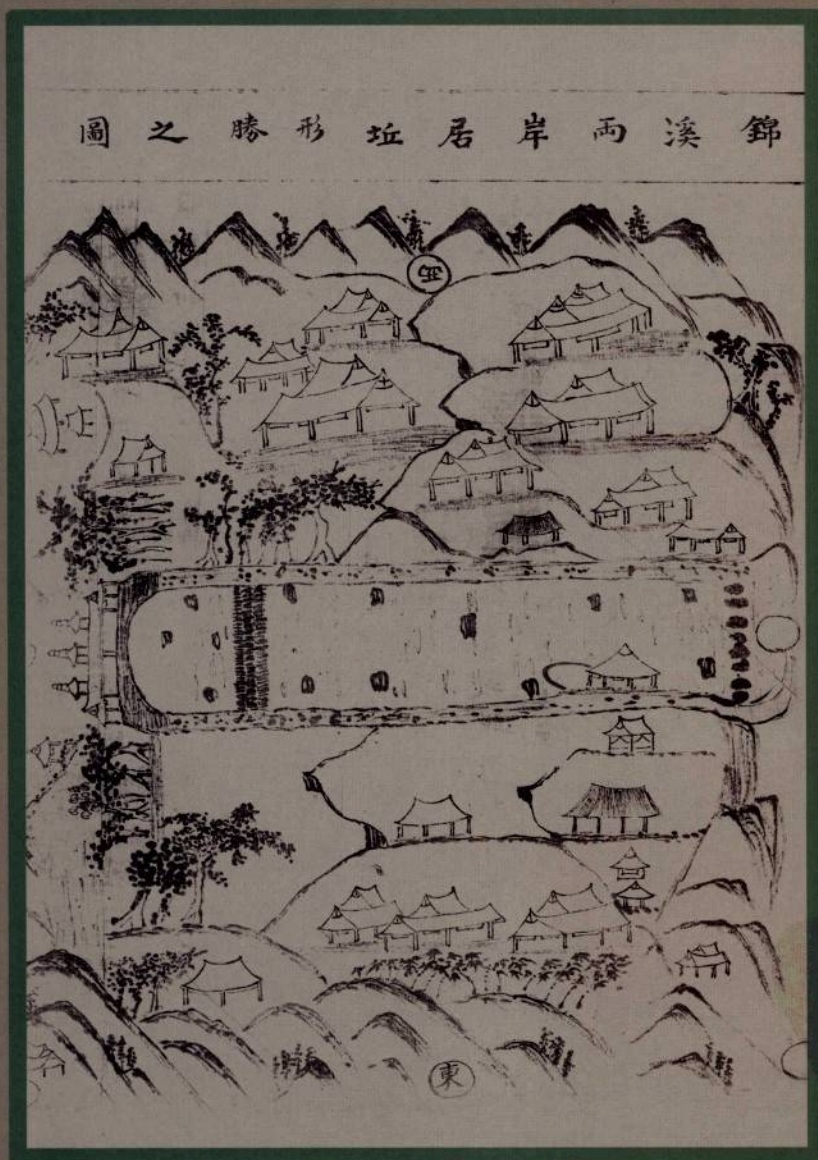 錦溪両岸居坵形勝之圖
西
東